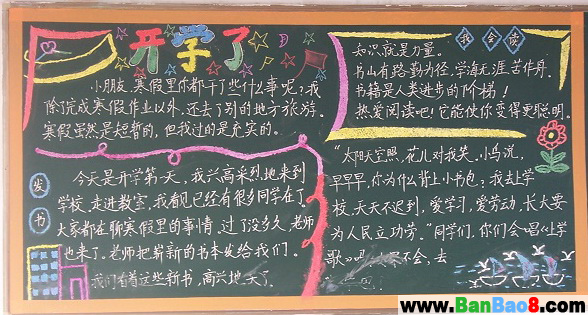 开学了
小朋友,寒假里你都干了些什么事呢?我
除了完成寒假作业以外,还去了别的地方旅游。
寒假虽然是短暂的,但我过的是充实的。
我会读
知识就是力量。
书山有路勤为径,学海无涯苦作舟。
书籍是人类进步的阶梯!
热爱阅读吧!它能使你变得更聪明。
发书
今天是开学第一天,我兴高采烈地来到
学校,走进教室,我看见已经有很多同学在了。
大家都在聊寒假里的事情,过了没多久,老师
也来了。老师把崭新的书本发给我们。
我们看着这些新书,高兴地笑了。
“太阳天空照,花儿对我笑,小鸟说,
早早早,你为什么背上小书包?我去上学
校,天天不迟到,爱学习,爱劳动,长大要
为人民立功劳。”同学们,你们会唱《上学
歌》吗 不会,去
www.BanBao8.com